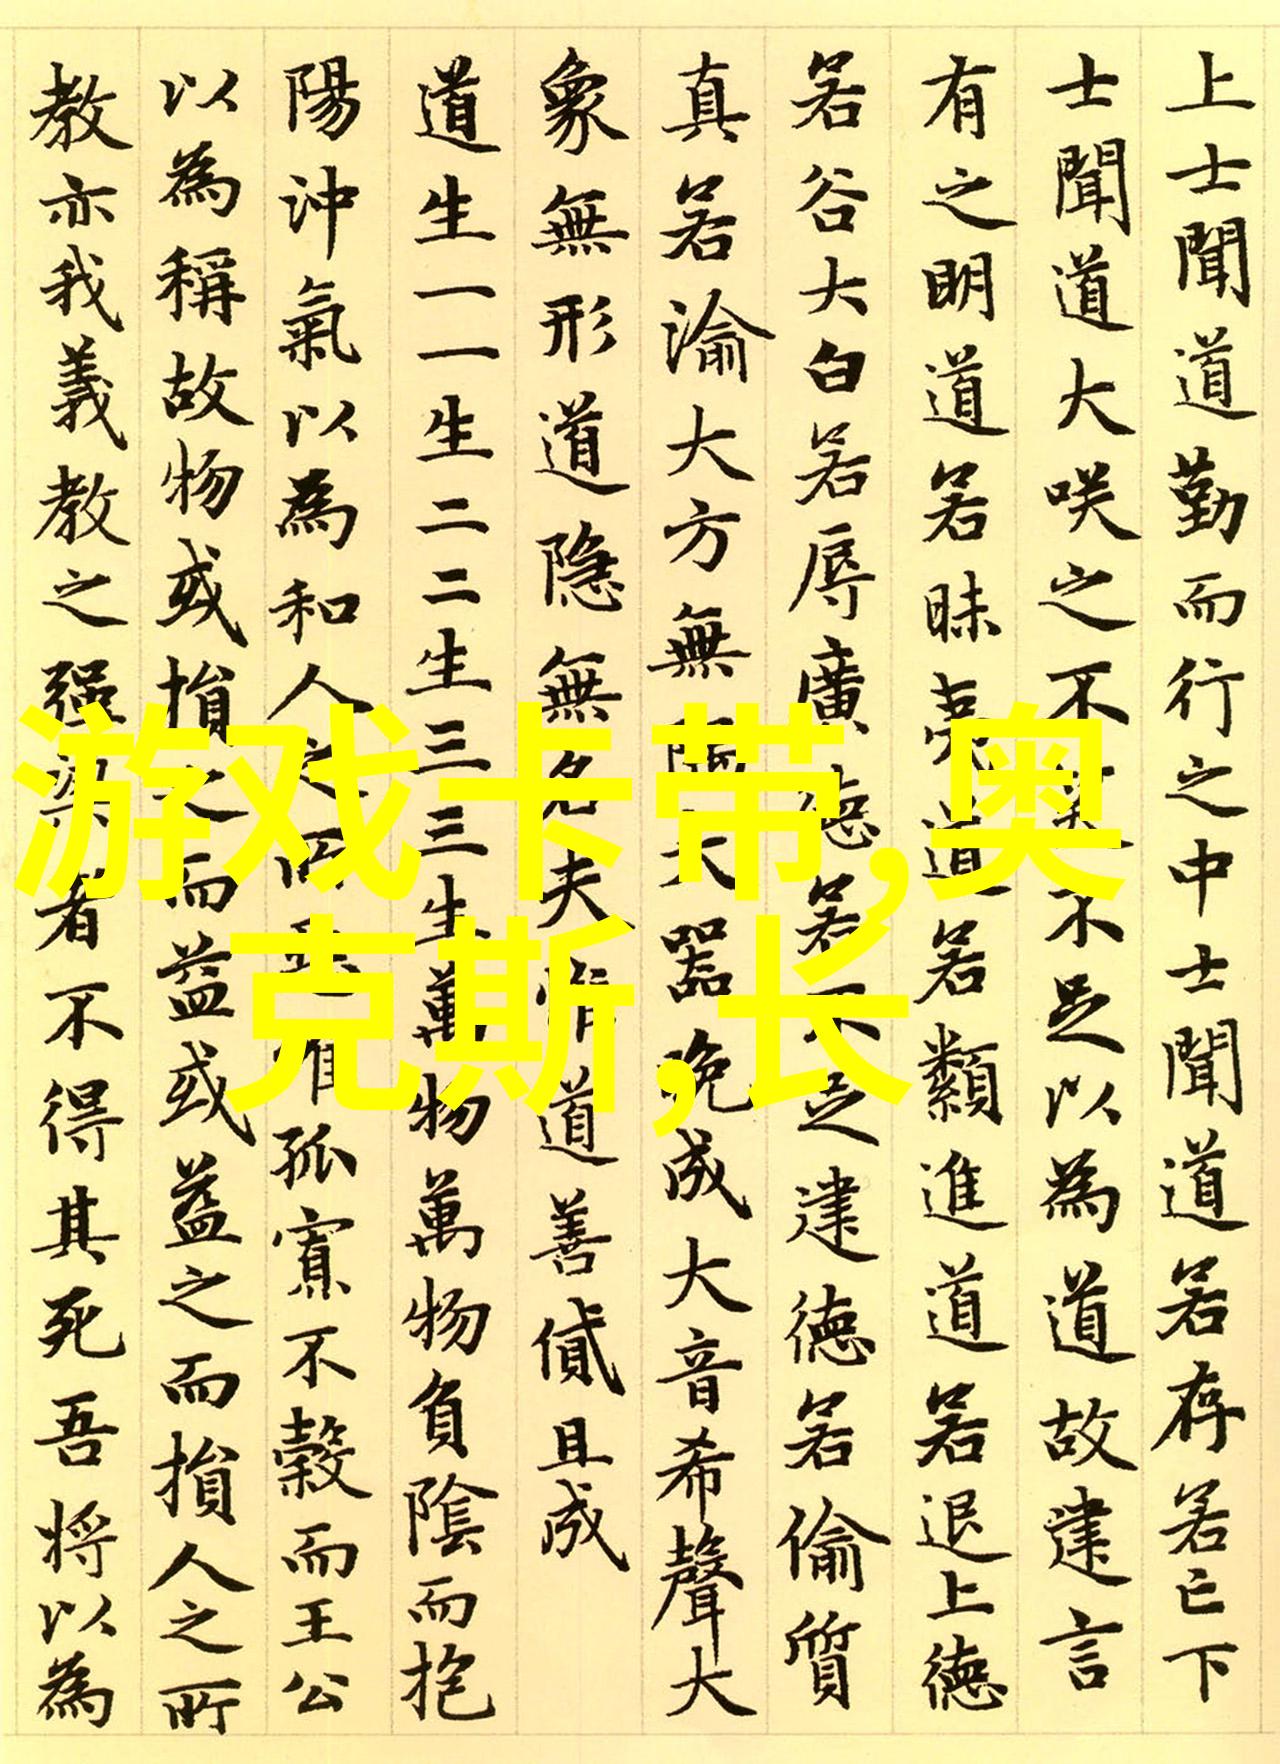 上士聞道勤而行之中士聞道若存若亡下
士聞道大咲之不笑不足以為道故建言
有之明道若昧夷道若類進道若退上德
若谷大白若辱廣德若不足建德若偷質
真若渝大方無隅大器晚成大音希聲大
象無形道隐無名夫惟道善貸且成
道生一一生二二生三三生萬物萬物負陰而抱
陽沖氣以為和人之所惡唯孤寡不穀而王公
以為稱故物或損之而益或益之而損人之所
教亦我義教之强梁者不得其死吾將以為
游戏卡带,奥
克斯,长